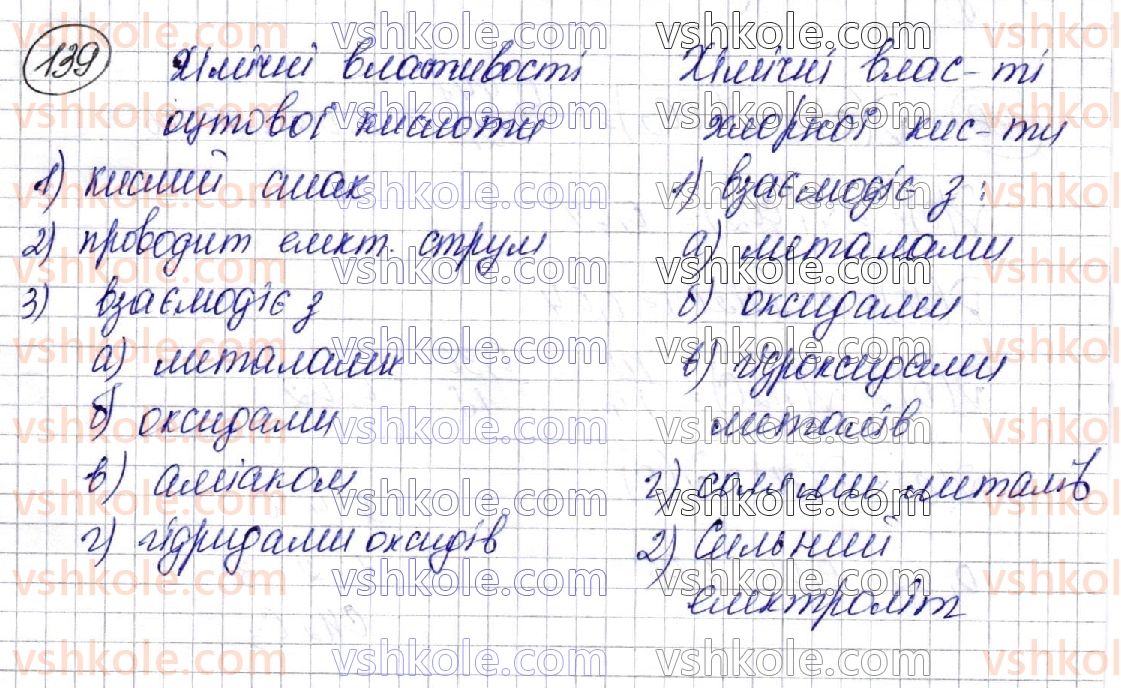 139
Хімічні властивості
оцтової кислоти
1) кислий смак
2) проводит елект. струм
3) взаємодіє з
а) металами
б) оксидами
в) аміаком
г) гідридами оксидів
Хімічні влас-ті
хлорної кис-ти
1) взаємодіє з:
а) металами
б) оксидами
в) гідроксидами
металів
г) солями металів
2) Сильний
електроліт
vshkole.com